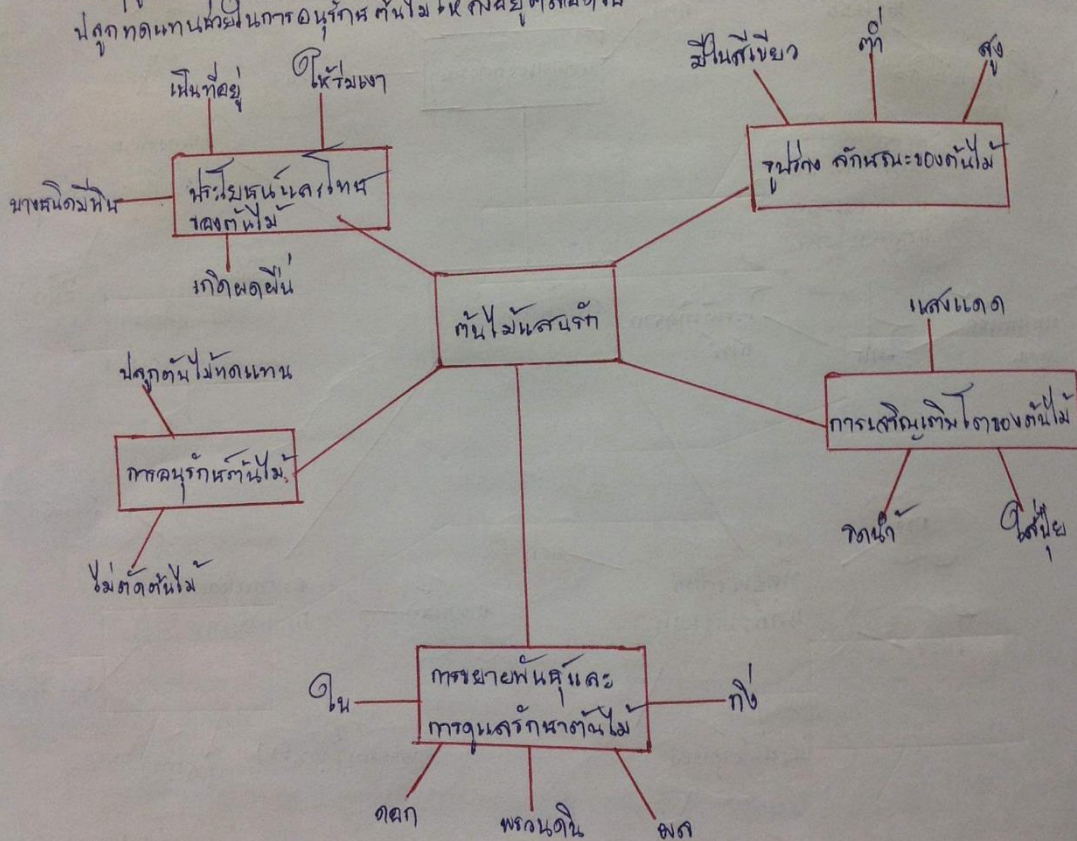 ปลูกทดแทนช่วยในการอนุรักษ์ต้นไม้ให้คงอยู่ตลอดไป
เป็นที่อยู่
ให้ร่มเงา
บางชนิดมีพิษ
ประโยชน์และโทษ
ของต้นไม้
เกิดผดผื่น
มีใบสีเขียว
ต่ำ
สูง
รูปร่าง ลักษณะของต้นไม้
ต้นไม้แสนรัก
แสงแดด
การเจริญเติบโตของต้นไม้
รดน้ำ
ใส่ปุ๋ย
ปลูกต้นไม้ทดแทน
การอนุรักษ์ต้นไม้
ไม่ตัดต้นไม้
การขยายพันธุ์และ
การดูแลรักษาต้นไม้
ใบ
กิ่ง
ดอก
พรวนดิน
ผล